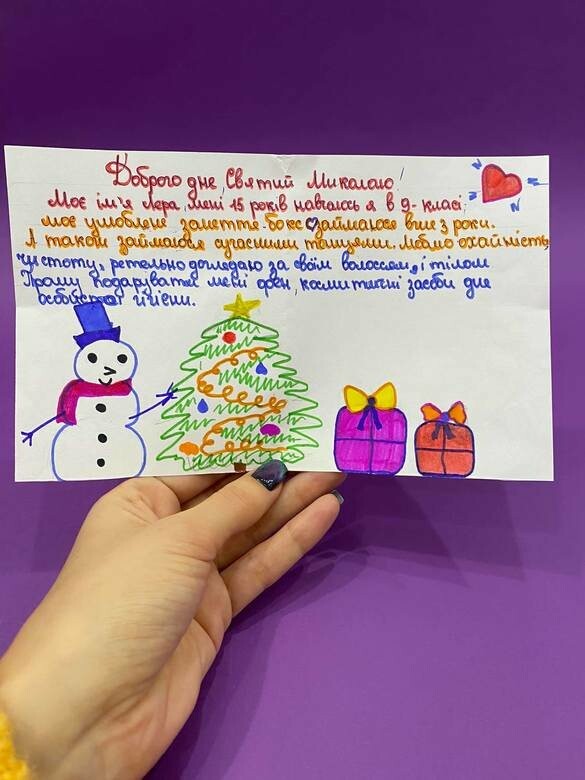 Доброго дне, Святий Миколаю!
Моє ім'я Лера, мені 15 років навчаюсь я в 9-класі,
моє улюблене заняття-бокс займаюсь вже 3 роки.
А також займаюся сучасними танцями. Люблю охайність,
чистоту, ретельно доглядаю за своїм волоссям, і тілом
Прошу подарувати мені фен, косметичні засоби для
особистої гігієни.